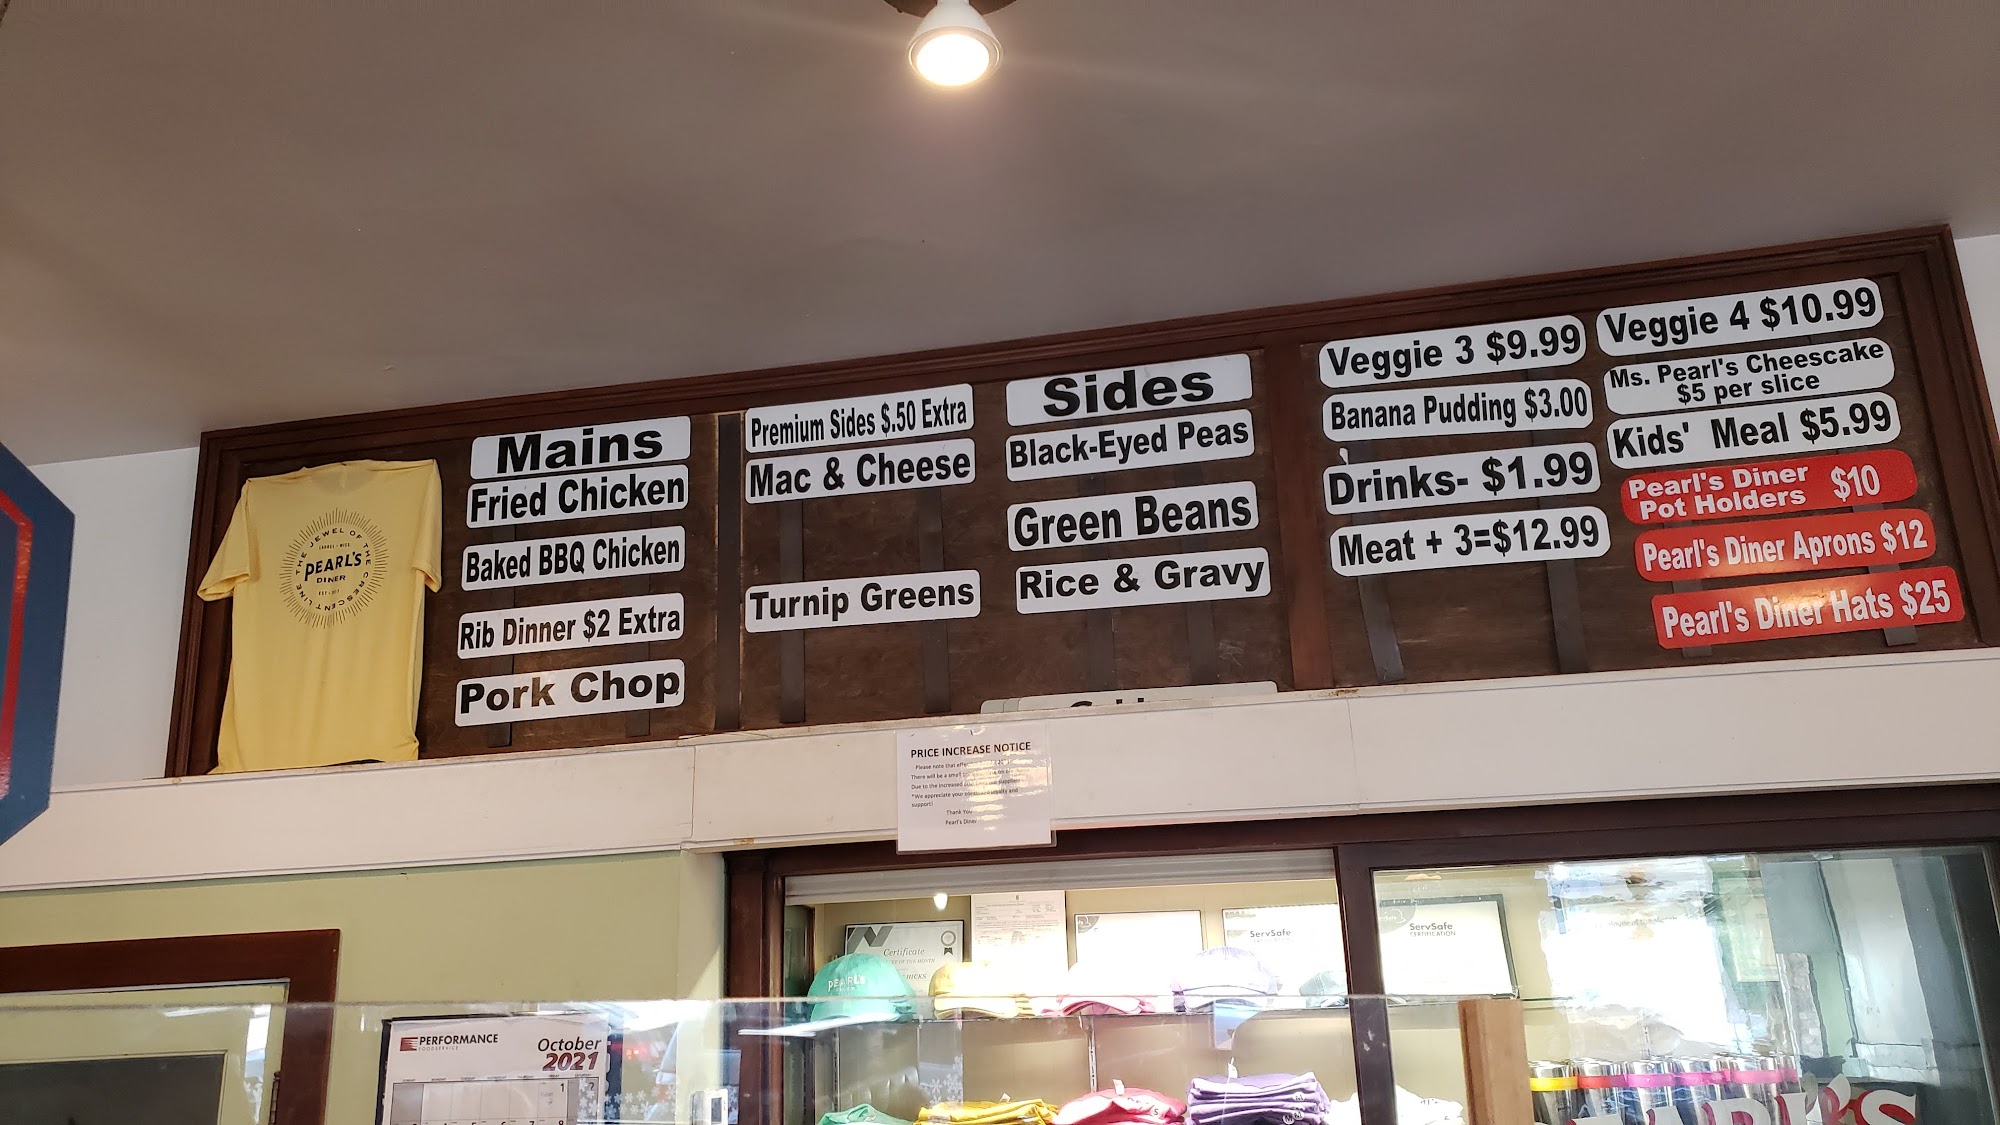 THE JEWEL OF THE CRESCENT LINE
PEARL'S
DINER
Mains
Fried Chicken
Baked BBQ Chicken
Rib Dinner $2 Extra
Pork Chop
Premium Sides $.50 Extra
Mac & Cheese
Turnip Greens
Sides
Black-Eyed Peas
Green Beans
Rice & Gravy
Veggie 3 $9.99
Banana Pudding $3.00
Drinks- $1.99
Meat + 3=$12.99
Veggie 4 $10.99
Ms. Pearl's Cheescake
$5 per slice
Kids' Meal $5.99
Pearl's Diner
Pot Holders $10
Pearl's Diner Aprons $12
Pearl's Diner Hats $25
PRICE INCREASE NOTICE
Please note that
There will be a
Due to the increased
*We appreciate your
support!
Thank You
Pearl's Diner
Certificate
OF THE MONTH
HICKS
ServSafe
ServSafe
CERTIFICATION
PEARL'S
PERFORMANCE
FOODSERVICE
October
2021
1
2